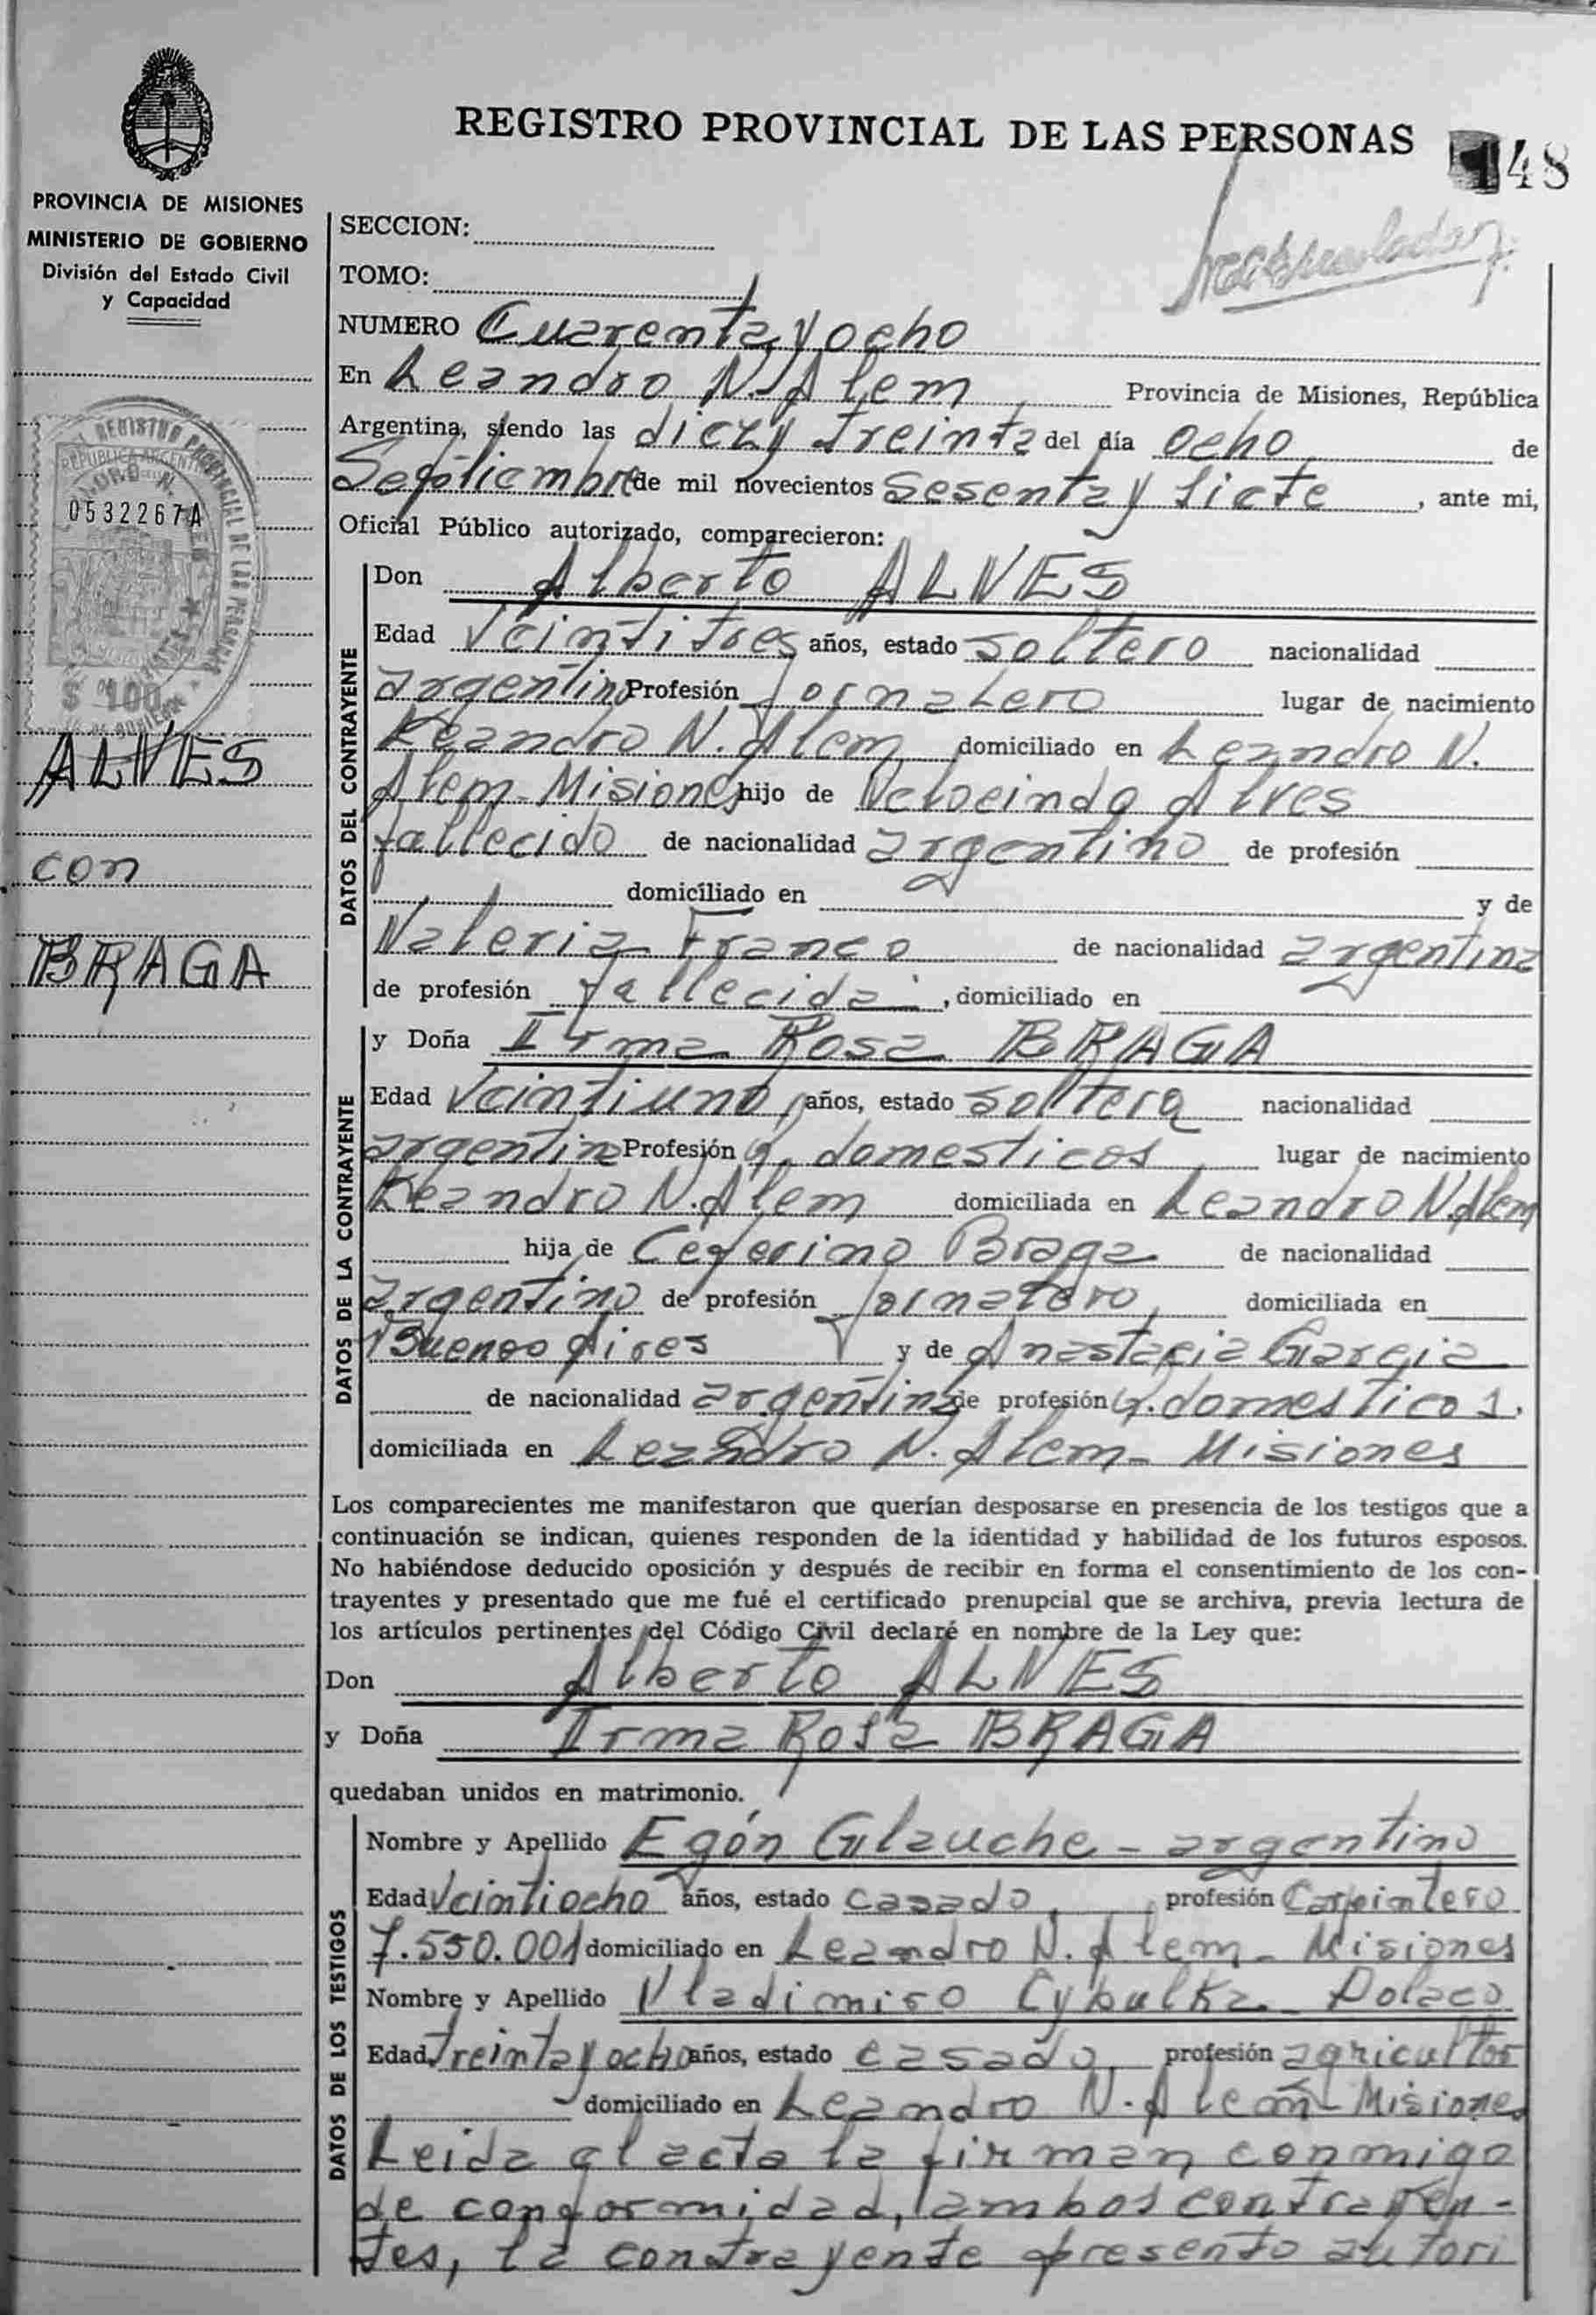 REGISTRO PROVINCIAL DE LAS PERSONAS
148
PROVINCIA DE MISIONES
MINISTERIO DE GOBIERNO
División del Estado Civil
y Capacidad
REPUBLICA ARGENTINA
0532267A
$ 100
ALVES
con
BRAGA
SECCION:
TOMO:
NUMERO Cuarenta y ocho
En Leandro N. Alem Provincia de Misiones, República
Argentina, siendo las diez y treinta del día ocho de
Septiembre de mil novecientos sesenta y siete, ante mi,
Oficial Público autorizado, comparecieron:
DATOS DEL CONTRAYENTE
Don Alberto ALVES
Edad Veintitres años, estado soltero nacionalidad
argentino Profesión Jornalero lugar de nacimiento
Leandro N. Alem domiciliado en Leandro N.
Alem-Misiones hijo de Alves
fallecido de nacionalidad argentino de profesión
domiciliado en y de
Valeria Franco de nacionalidad argentina
de profesión fallecida, domiciliado en
DATOS DE LA CONTRAYENTE
y Doña Irma Rosa BRAGA
Edad Veintiuno, años, estado soltera nacionalidad
argentina Profesión q. domesticos lugar de nacimiento
Leandro N. Alem domiciliada en Leandro N. Alem
hija de Ceferino Braga de nacionalidad
argentino de profesión Jornalero, domiciliada en
Buenos Aires y de Anastacia Garcia
de nacionalidad argentina de profesión q. domesticos.
domiciliada en Leandro N. Alem - Misiones
Los comparecientes me manifestaron que querían desposarse en presencia de los testigos que a
continuación se indican, quienes responden de la identidad y habilidad de los futuros esposos.
No habiéndose deducido oposición y después de recibir en forma el consentimiento de los con-
trayentes y presentado que me fué el certificado prenupcial que se archiva, previa lectura de
los artículos pertinentes del Código Civil declaré en nombre de la Ley que:
Don Alberto ALVES
y Doña Irma Rosa BRAGA
quedaban unidos en matrimonio.
DATOS DE LOS TESTIGOS
Nombre y Apellido Egón Glauche - argentino
Edad Veintiocho años, estado casado, profesión Carpintero
7.550.001 domiciliado en Leandro N. Alem - Misiones
Nombre y Apellido Vladimiro Cybulka - Polaco
Edad Treinta y ocho años, estado casado, profesión agricultor
domiciliado en Leandro N. Alem - Misiones
Leida el acta la firman conmigo
de conformidad, ambos contrayen-
tes, la contrayente presento autori